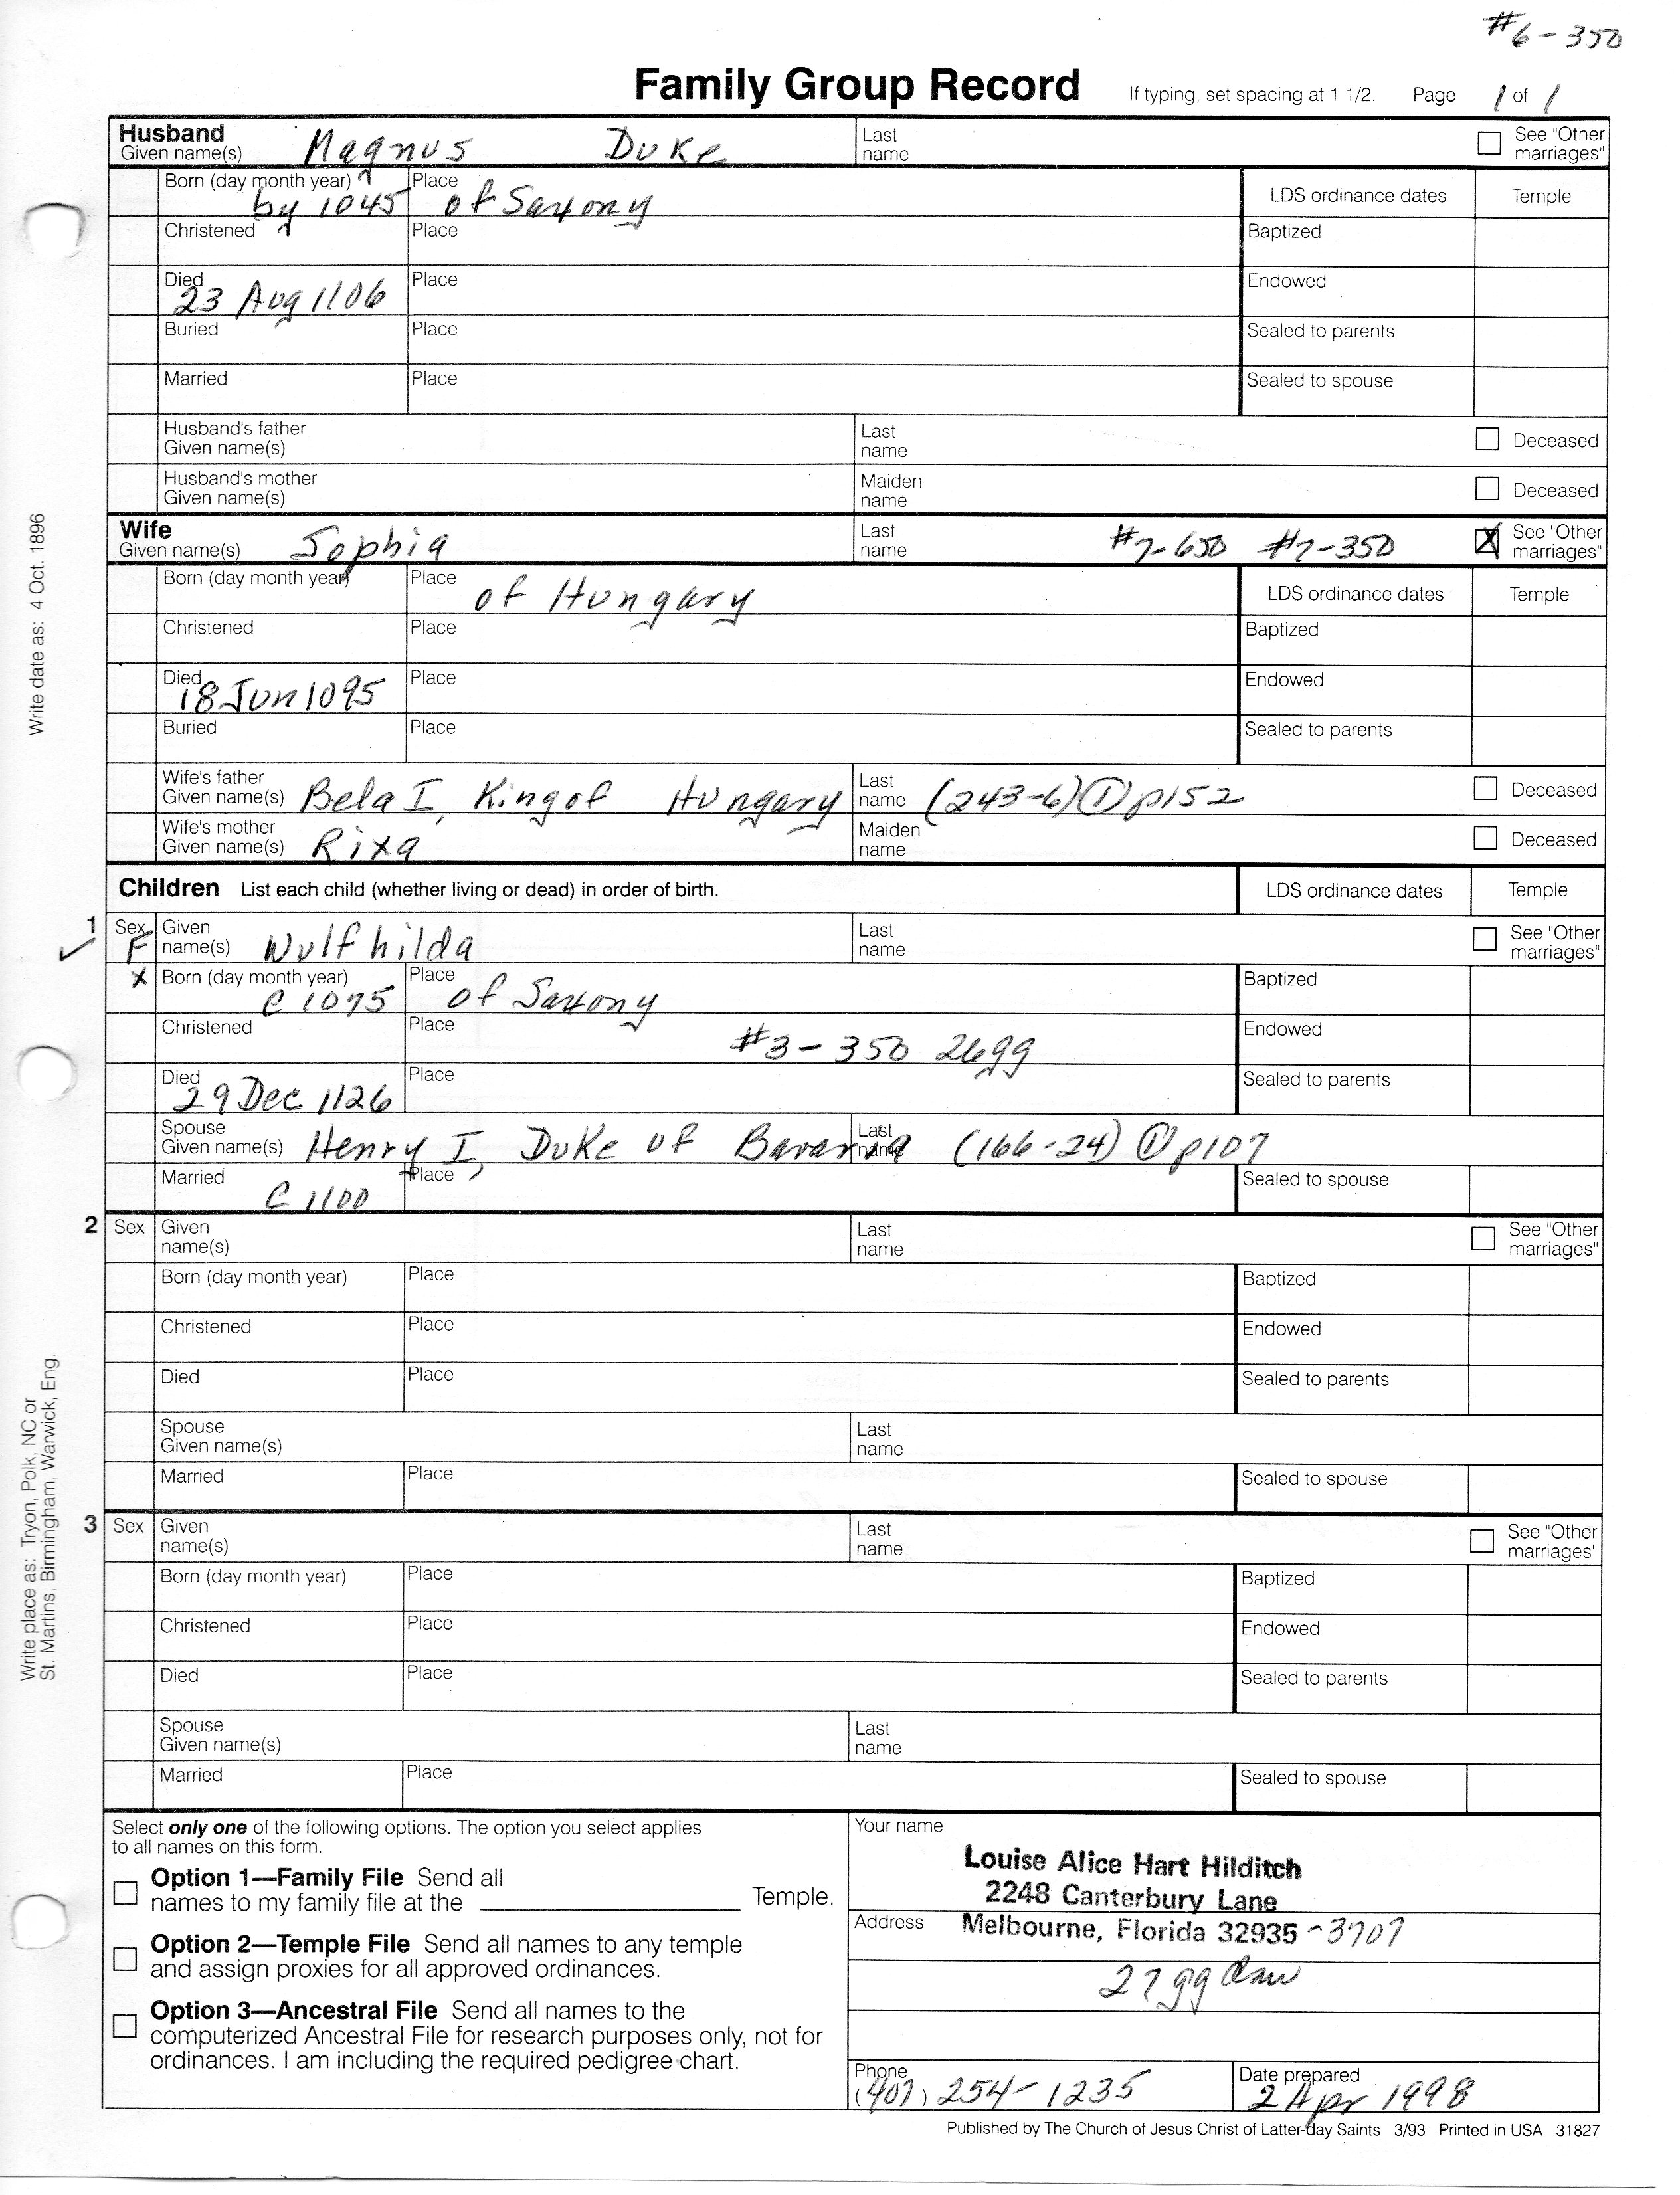 #6-350
Family Group Record If typing, set spacing at 1 1/2. Page 1 of 1
Husband
Given name(s) Magnus Duke Last name See "Other marriages"
Born (day month year) by 1045 Place of Saxony LDS ordinance dates Temple
Christened Place Baptized
Died 23 Aug 1106 Place Endowed
Buried Place Sealed to parents
Married Place Sealed to spouse
Husband's father Given name(s) Last name Deceased
Husband's mother Given name(s) Maiden name Deceased
Wife
Given name(s) Sophia Last name #7-650 #7-350 X See "Other marriages"
Born (day month year) Place of Hungary LDS ordinance dates Temple
Christened Place Baptized
Died 18 Jun 1095 Place Endowed
Buried Place Sealed to parents
Wife's father Given name(s) Bela I, King of Hungary Last name (243-6) ① p152 Deceased
Wife's mother Given name(s) Rixa Maiden name Deceased
Children List each child (whether living or dead) in order of birth. LDS ordinance dates Temple
1 ✓ Sex F Given name(s) Wulfhilda Last name See "Other marriages"
X Born (day month year) C 1075 Place of Saxony Baptized
Christened Place #3-350 26gg Endowed
Died 29 Dec 1126 Place Sealed to parents
Spouse Given name(s) Henry I, Duke of Bavaria Last name (166-24) ① p107
Married C 1100 Place Sealed to spouse
2 Sex Given name(s) Last name See "Other marriages"
Born (day month year) Place Baptized
Christened Place Endowed
Died Place Sealed to parents
Spouse Given name(s) Last name
Married Place Sealed to spouse
3 Sex Given name(s) Last name See "Other marriages"
Born (day month year) Place Baptized
Christened Place Endowed
Died Place Sealed to parents
Spouse Given name(s) Last name
Married Place Sealed to spouse
Select only one of the following options. The option you select applies
to all names on this form.
Option 1—Family File Send all
names to my family file at the Temple.
Option 2—Temple File Send all names to any temple
and assign proxies for all approved ordinances.
Option 3—Ancestral File Send all names to the
computerized Ancestral File for research purposes only, not for
ordinances. I am including the required pedigree chart.
Your name
Louise Alice Hart Hilditch
2248 Canterbury Lane
Address Melbourne, Florida 32935-3707
27gg
Phone (407) 254-1235 Date prepared 2 Apr 1998
Published by The Church of Jesus Christ of Latter-day Saints 3/93 Printed in USA 31827
Write date as: 4 Oct. 1896
Write place as: Tryon, Polk, NC or
St. Martins, Birmingham, Warwick, Eng.